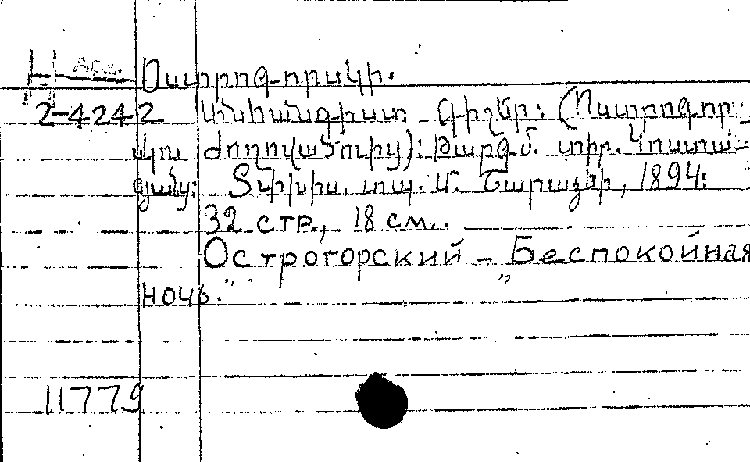 Օստրոգորսկի.
2-4242 Անհանգիստ գիշեր: (Ոստրոգոր-
սկու ժողովածուից): Թարգմ. տիր. Կոստա-
նյանց: Տփխիս. տպ. Մ. Շարաձե, 1894:
32 стр., 18 см.
Острогорский – „Беспокойная
ночь."
11779